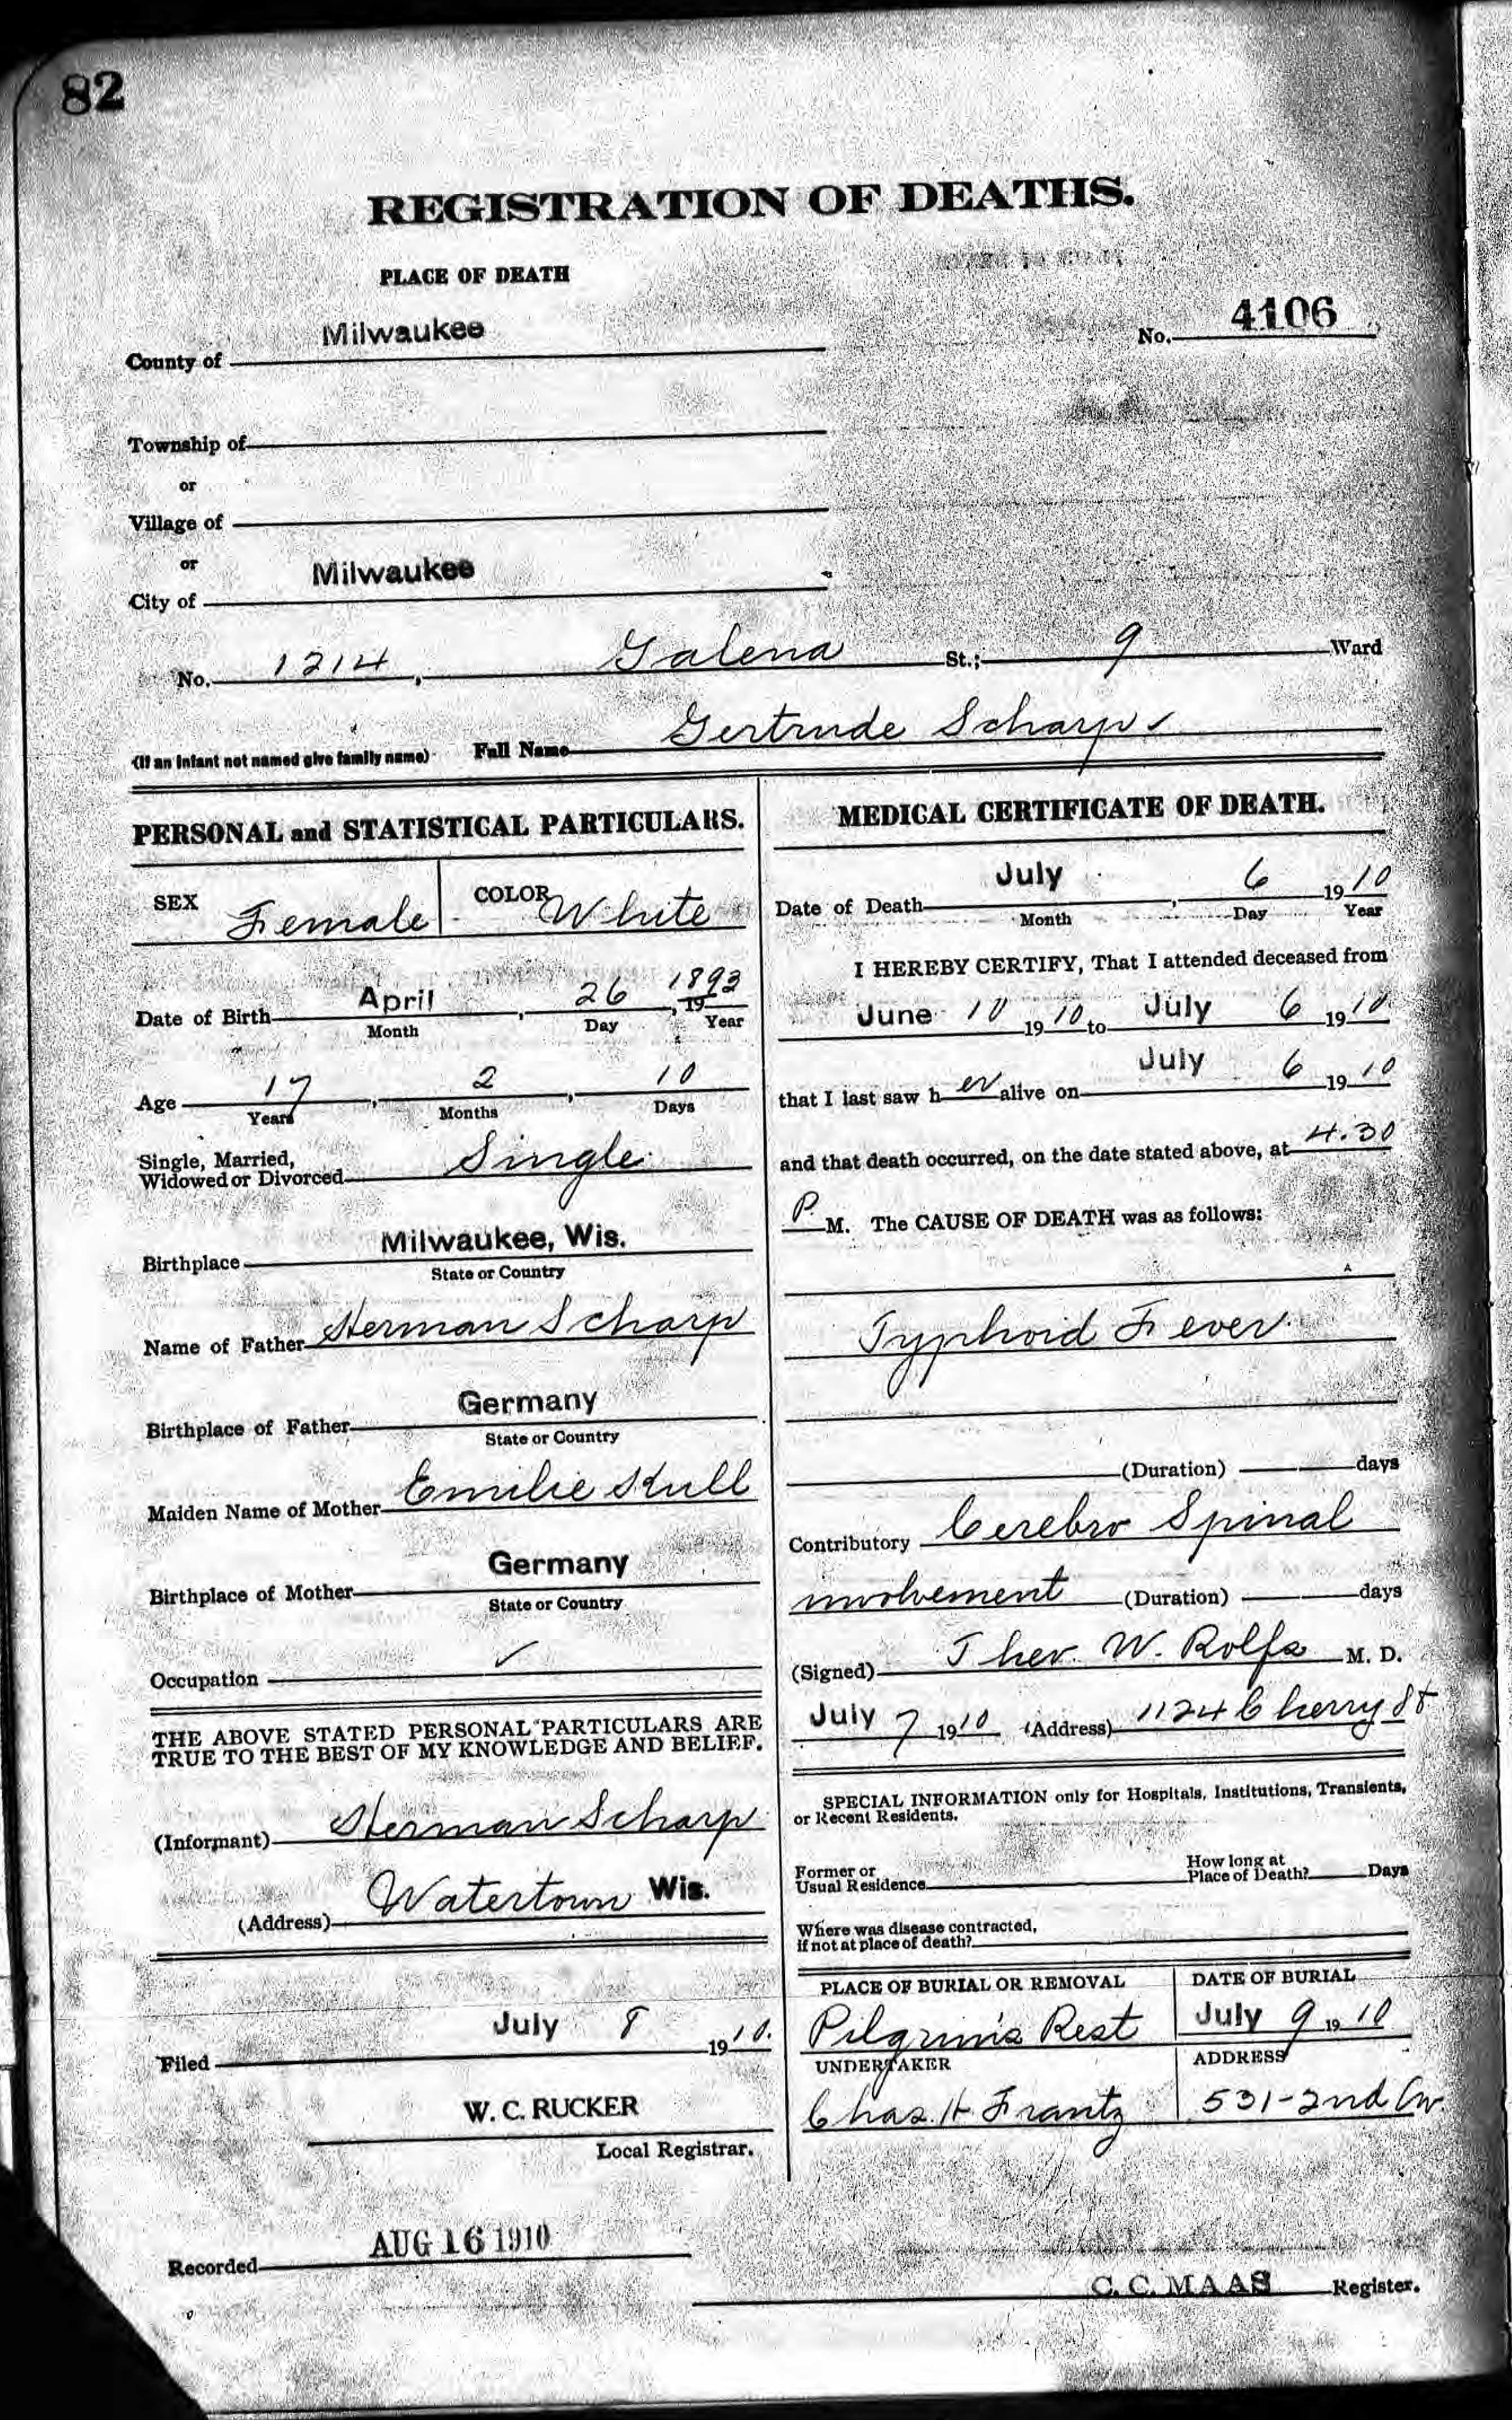 82
REGISTRATION OF DEATHS.
PLACE OF DEATH
County of Milwaukee
No. 4106
Township of
or
Village of
or
City of Milwaukee
No. 1214, Galena St.; 9 Ward
(If an infant not named give family name) Full Name Gertrude Scharp
PERSONAL and STATISTICAL PARTICULARS.
SEX Female COLOR White
Date of Birth April, 26, 19 1893
Month Day Year
Age 17, 2, 10
Years Months Days
Single, Married,
Widowed or Divorced Single
Birthplace Milwaukee, Wis.
State or Country
Name of Father Herman Scharp
Birthplace of Father Germany
State or Country
Maiden Name of Mother Emilie Kull
Birthplace of Mother Germany
State or Country
Occupation ✓
THE ABOVE STATED PERSONAL PARTICULARS ARE
TRUE TO THE BEST OF MY KNOWLEDGE AND BELIEF.
(Informant) Herman Scharp
(Address) Watertown Wis.
Filed July 8 1910.
W. C. RUCKER
Local Registrar.
MEDICAL CERTIFICATE OF DEATH.
Date of Death July, 6 1910
Month Day Year
I HEREBY CERTIFY, That I attended deceased from
June 10 1910 to July 6 1910
that I last saw her alive on July 6 1910
and that death occurred, on the date stated above, at 4.30
P. M. The CAUSE OF DEATH was as follows:
Typhoid Fever
(Duration) days
Contributory Cerebro Spinal
involvement (Duration) days
(Signed) Ther. W. Rolfs M. D.
July 7 1910 (Address) 1124 Cherry St
SPECIAL INFORMATION only for Hospitals, Institutions, Transients,
or Recent Residents.
Former or
Usual Residence
How long at
Place of Death? Days
Where was disease contracted,
if not at place of death?
PLACE OF BURIAL OR REMOVAL DATE OF BURIAL
Pilgrim's Rest July 9 1910
UNDERTAKER ADDRESS
Chas. H Frantz 531-2nd Av.
Recorded AUG 16 1910
C. C. MAAS Register.